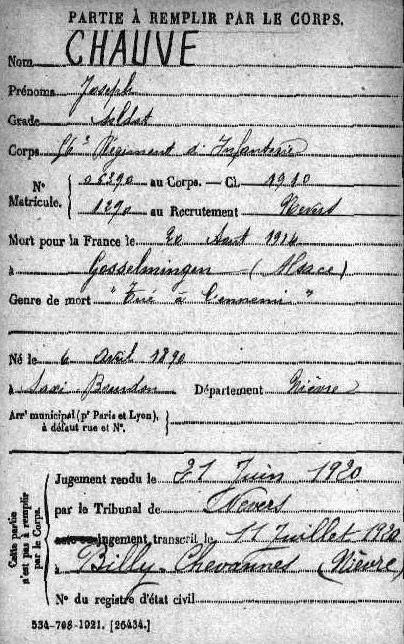 PARTIE À REMPLIR PAR LE CORPS.
Nom CHAUVE
Prénoms Joseph
Grade Soldat
Corps 56e Régiment d'Infanterie
N° Matricule. { 06290 au Corps. — Cl. 1910
1290 au Recrutement Nevers
Mort pour la France le 20 Aout 1914
à Gosselmingen (Alsace)
Genre de mort "Tué à l'ennemi"
Né le 6 Avril 1890
à Saxi Bourdon Département Nièvre
Arrt municipal (pr Paris et Lyon), à défaut rue et N°. {
Cette partie n'est pas à remplir par le Corps.
Jugement rendu le 21 Juin 1920
par le Tribunal de Nevers
jugement transcrit le 11 Juillet 1920
à Billy-Chevannes (Nièvre)
N° du registre d'état civil
534-708-1921. [26434.]